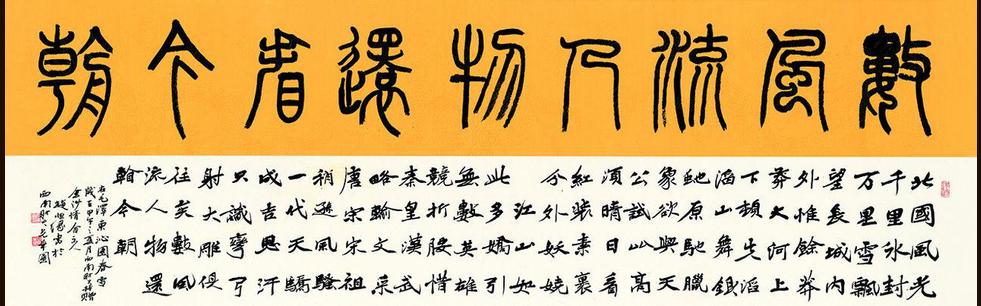 數風流人物還看今朝
北國風光
千里冰封
万里雪飄
望長城內
外惟餘莽
莽大河上
下頓失滔
滔山舞銀
蛇原馳臘
象欲與天
公試比高
須晴日看
紅裝素裹
分外妖嬈
江山如
此多嬌引
無數英雄
競折腰惜
秦皇漢武
略輸文采
唐宗宋祖
稍遜風騷
一代天驕
成吉思汗
只識彎弓
射大雕俱
往矣數風
流人物還
今朝
右毛澤東沁園春雪
甲午之五月西南野